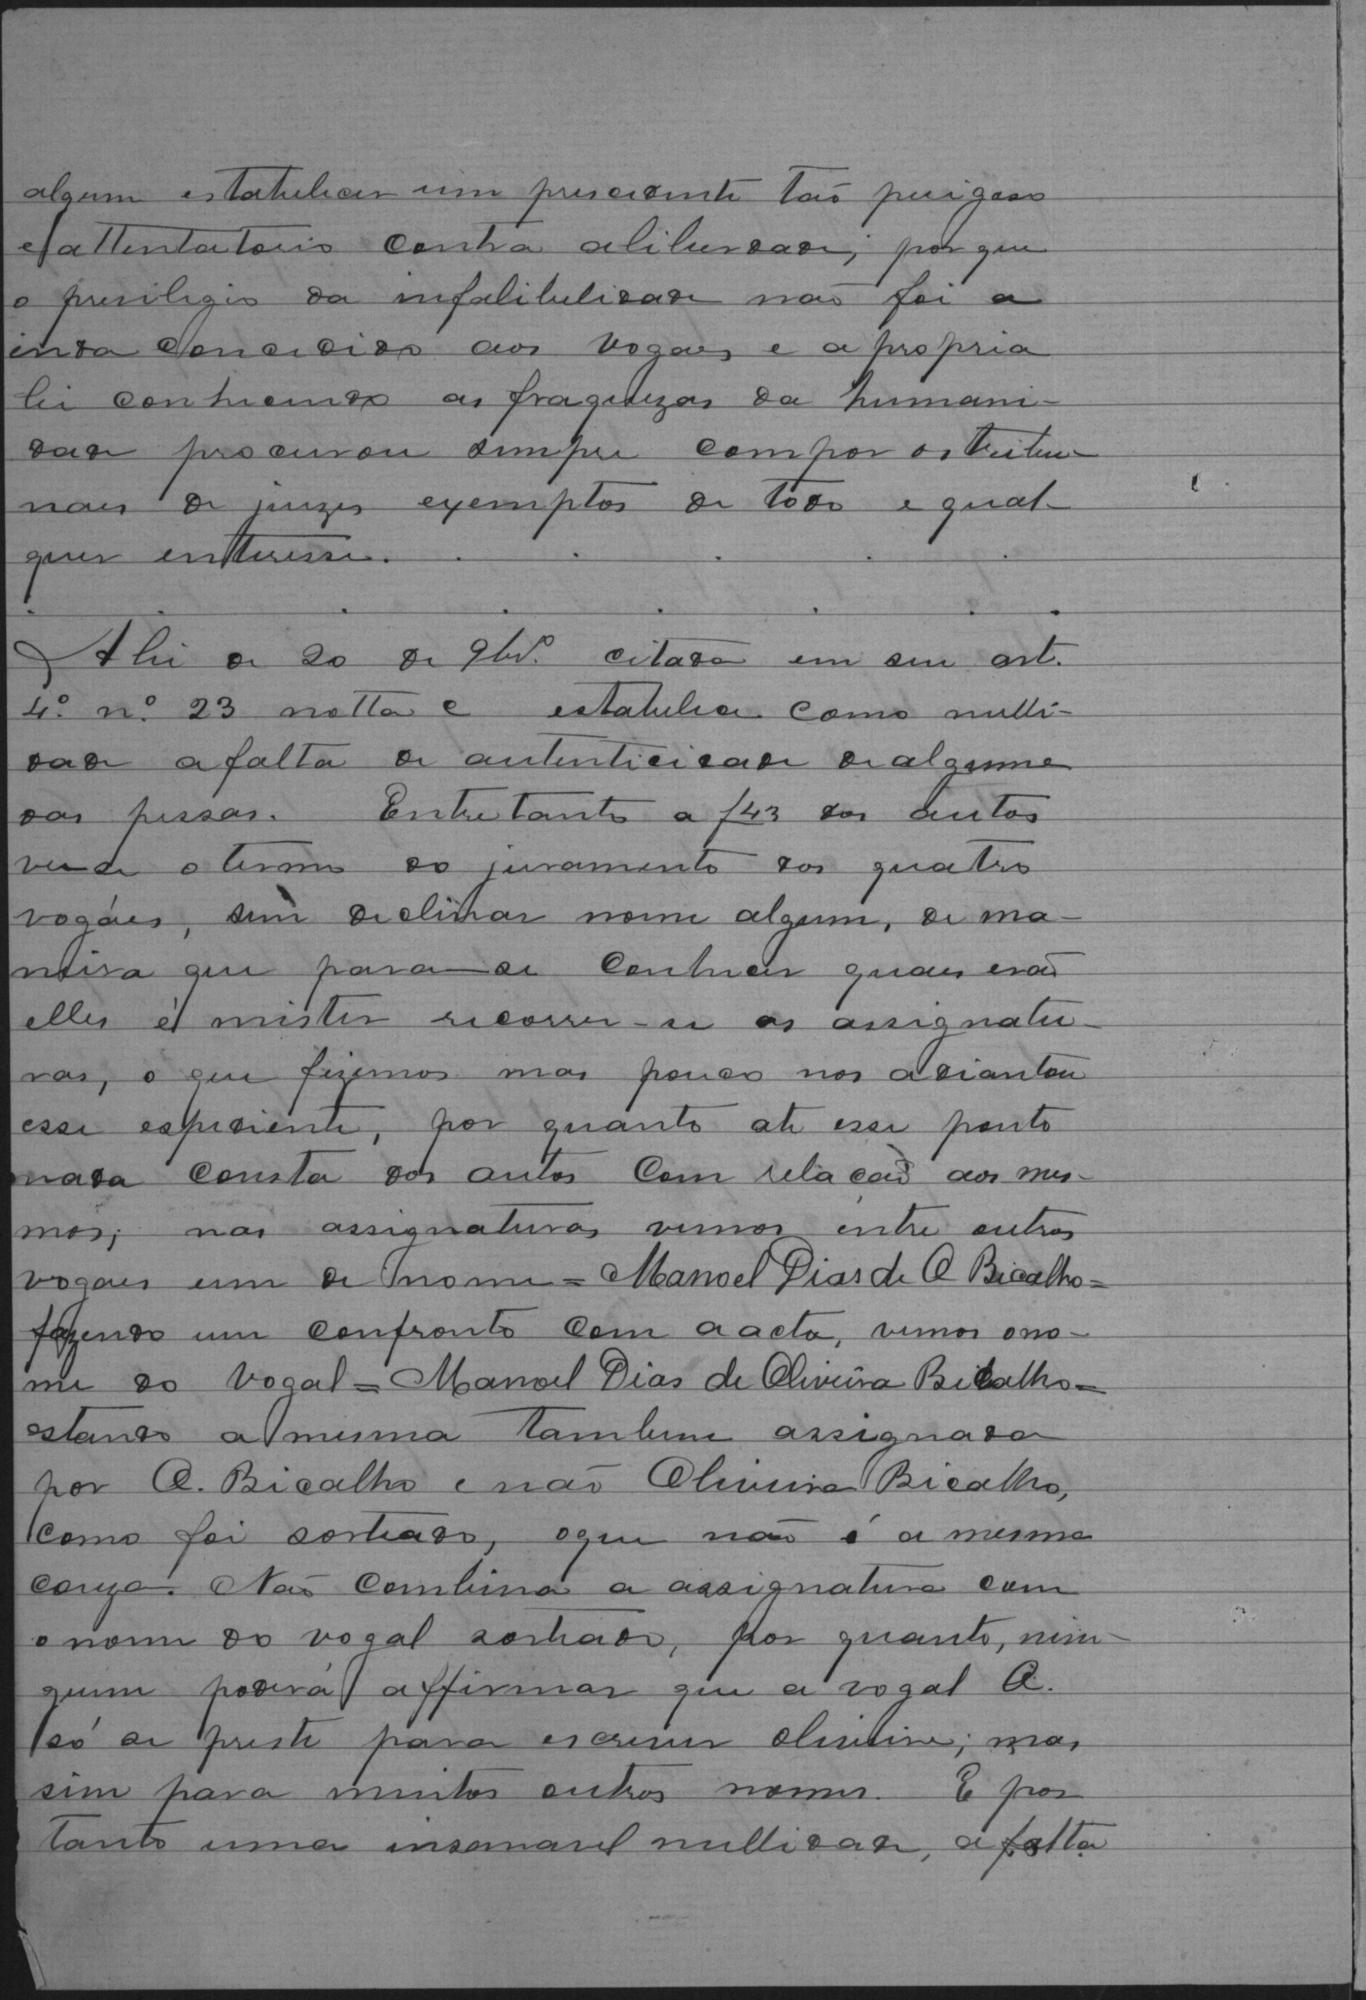 algum estabelecer um prescedente tão perigoso
e attentatorio contra a liberdade; por que
o previlegio da infalibelidade não foi a
inda concedido aos vogaes e a propria
lei conhecendo as fraquezas da humani-
dade procurou sempre compor os tribu-
naes de juizes exemptos de todo e qual-
quer enteresse. . . . . .
. . . . . . . .
A lei de 20 de 9br.º citada em seu art.
4.º n.º 23 notta C estabelece como nulli-
dade a falta de autenticidade de alguma
das pessas. Entretanto a f43 dos autos
ve-se o termo do juramento dos quatro
vogáes, sem declinar nome algum, de ma-
neira que para se conhecer quaes erão
elles é mister recorrer-se as assignatu-
ras, o que fizemos mas pouco nos adiantou
esse espediente, por quanto até esse ponto
nada consta dos autos com relação aos mes-
mos; nas assignaturas vemos entre outros
vogaes um de nome = Manoel Dias de O Bicalho =
fazendo um confronto com a acta, vemos o no-
me do vogal = Manoel Dias de Oliveira Bicalho =
estando a mesma tambem assignada
por O. Bicalho e não Oliveira Bicalho,
como foi sorteado, o que não é a mesma
couza. Não combina a assignatura com
o nome do vogal sorteado, por quanto, nin-
guem poderá affirmar que a vogal O.
só se preste para escrever oliveira; mas
sim para muitos outros nomes. E por
tanto uma insanavel nullidade, a falta